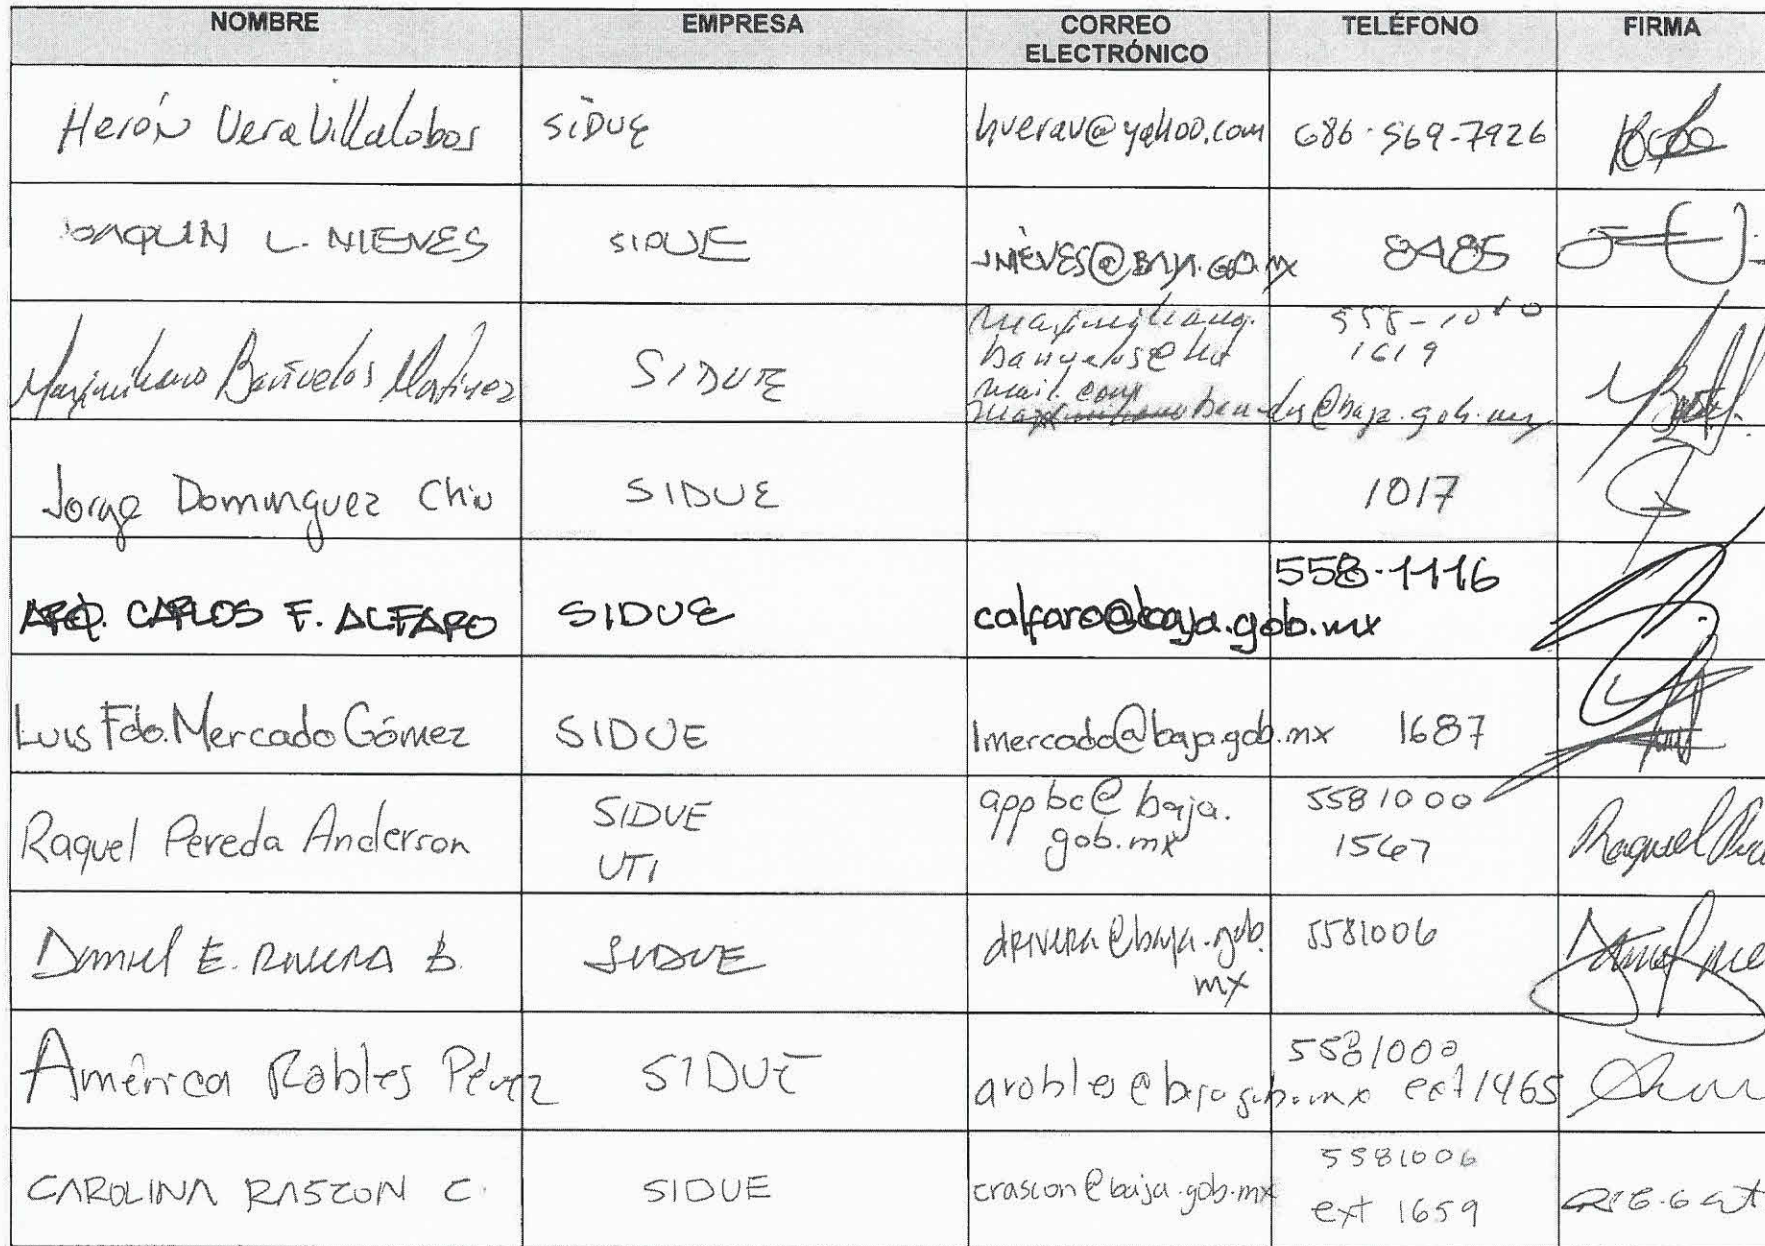 NOMBRE EMPRESA CORREO ELECTRÓNICO TELÉFONO FIRMA
Herón Vera Villalobos SIDUE hverav@yahoo.com 686-569-7926
JOAQUIN L. NIEVES SIDUE JNIEVES@BAJA.GOB.MX 8485
Maximiliano Bañuelos Martinez SIDUE maximiliano.
banuelos@hot
mail.com
558-1010
1619
@baja.gob.mx
Jorge Dominguez Chiu SIDUE 1017
ARQ. CARLOS F. ALFARO SIDUE calfaro@baja.gob.mx 558-1116
Luis Fdo. Mercado Gómez SIDUE lmercado@baja.gob.mx 1687
Raquel Pereda Anderson SIDUE
UTI
appbc@baja.
gob.mx
5581000
1567
Raquel
Daniel E. RIVERA B. SIDUE drivera@baja.gob.
mx
5581006
América Robles Pérez SIDUE arobles@baja.gob.mx 5581000
ext 1465
CAROLINA RASCON C. SIDUE crascon@baja.gob.mx 5581006
ext 1659